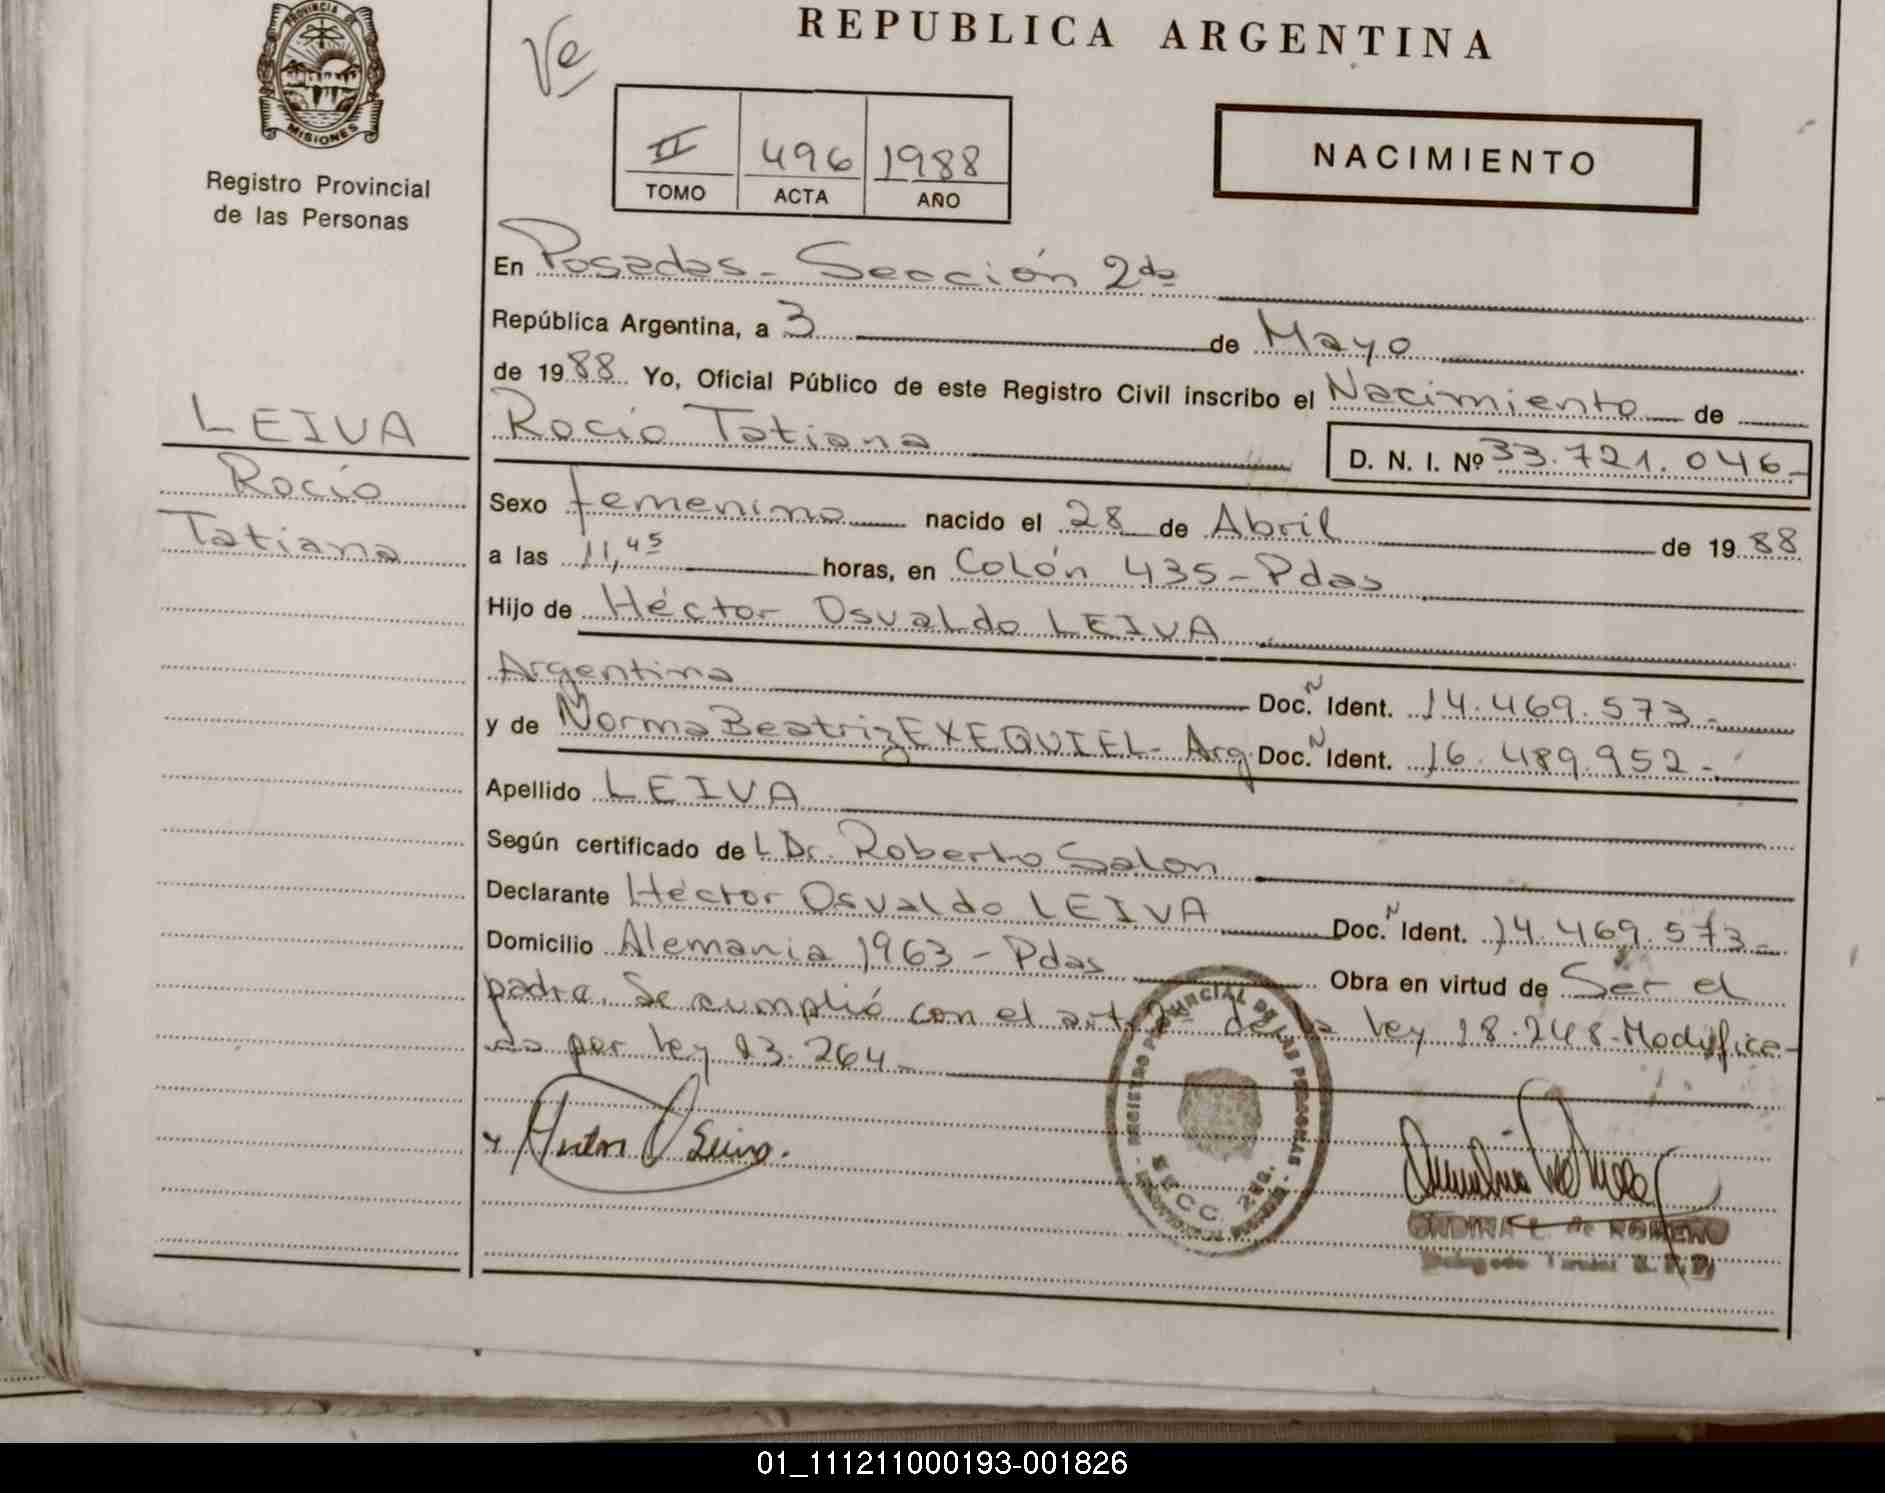 PROVINCIA DE
MISIONES
Registro Provincial
de las Personas
LEIVA
Rocío
Tatiana
REPUBLICA ARGENTINA
II 496 1988
TOMO ACTA AÑO
NACIMIENTO
En Posadas - Sección 2da
República Argentina, a 3 de Mayo
de 1988 Yo, Oficial Público de este Registro Civil inscribo el Nacimiento de
Rocío Tatiana D. N. I. Nº 33.721.046-
Sexo femenino nacido el 28 de Abril de 1988
a las 11,45 horas, en Colón 435 - Pdas
Hijo de Héctor Osvaldo LEIVA
Argentina Doc. N Ident. 14.469.573-
y de Norma Beatriz EXEQUIEL - Arg. Doc. N Ident. 16.489.952-
Apellido LEIVA
Según certificado del Dr. Roberto Salon
Declarante Héctor Osvaldo LEIVA Doc. N Ident. 14.469.573-
Domicilio Alemania 1963 - Pdas Obra en virtud de Ser el
padre. Se cumplió con el art. 2º de la ley 18.248-Modifica-
da por ley 23.264
REGISTRO PROVINCIAL DE LAS PERSONAS
SECC. 2da.
ONDINA E. de ROMERO
01_111211000193-001826